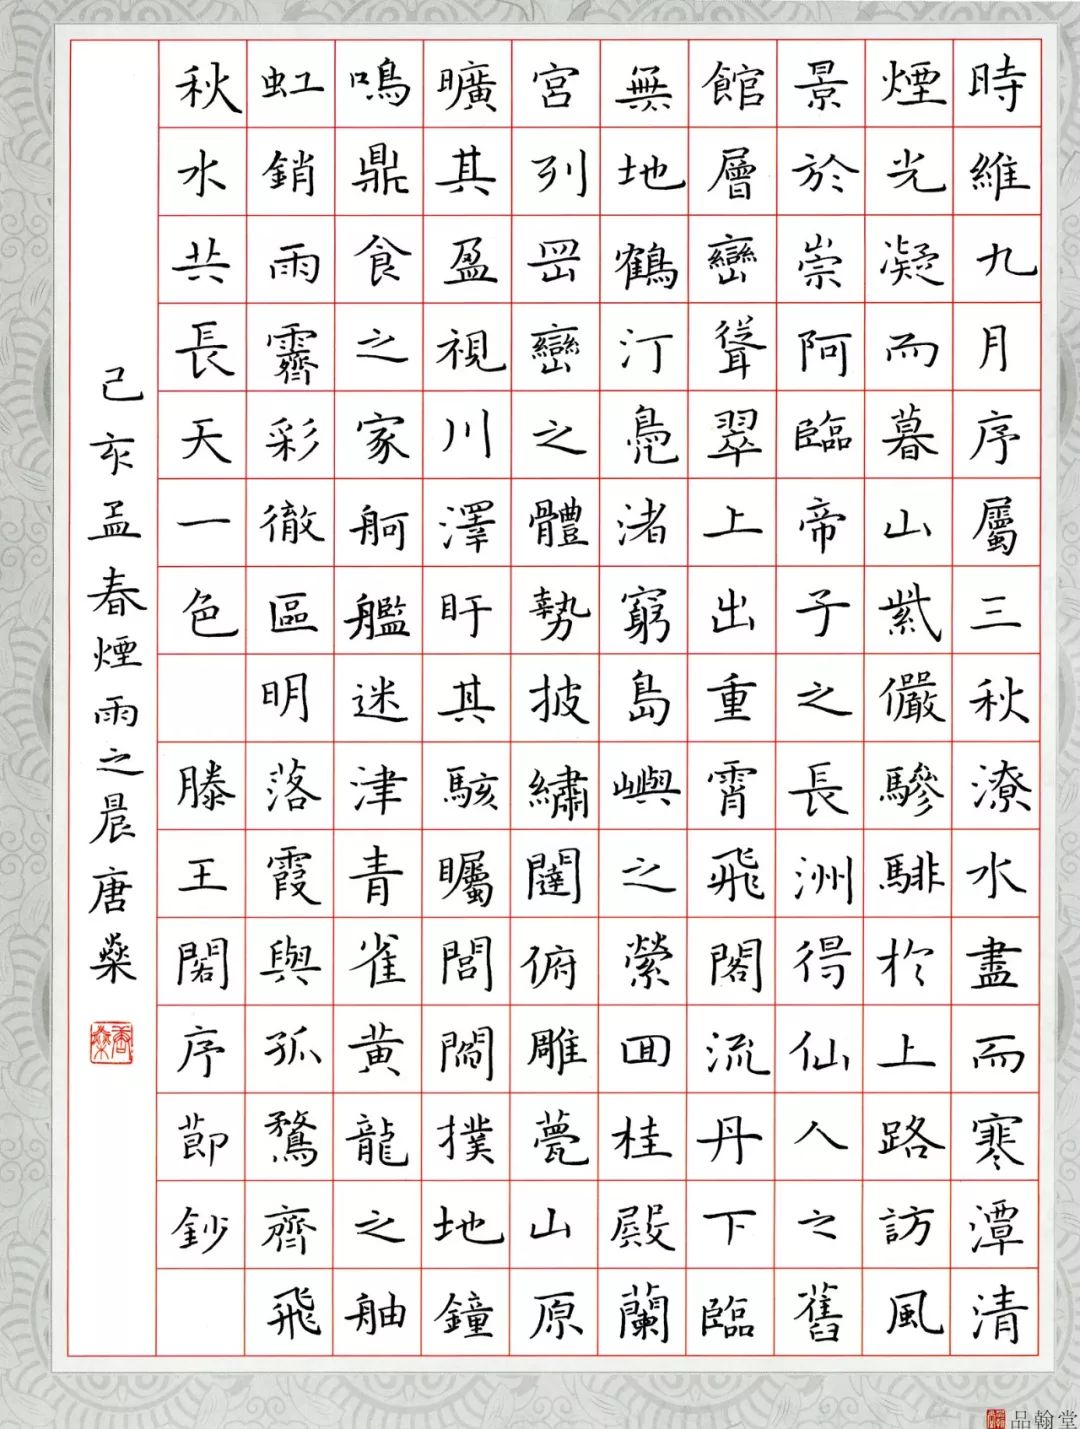 時維九月序屬三秋潦水盡而寒潭清
煙光凝而暮山紫儼驂騑於上路訪風
景於崇阿臨帝子之長洲得仙人之舊
館層巒聳翠上出重霄飛閣流丹下臨
無地鶴汀鳧渚窮島嶼之縈回桂殿蘭
宮列岡巒之體勢披繡闥俯雕甍山原
曠其盈視川澤盱其駭矚閭閻撲地鐘
鳴鼎食之家舸艦迷津青雀黃龍之舳
虹銷雨霽彩徹區明落霞與孤鶩齊飛
秋水共長天一色 滕王閣序節鈔
己亥孟春煙雨之晨唐燊
唐燊
品翰堂